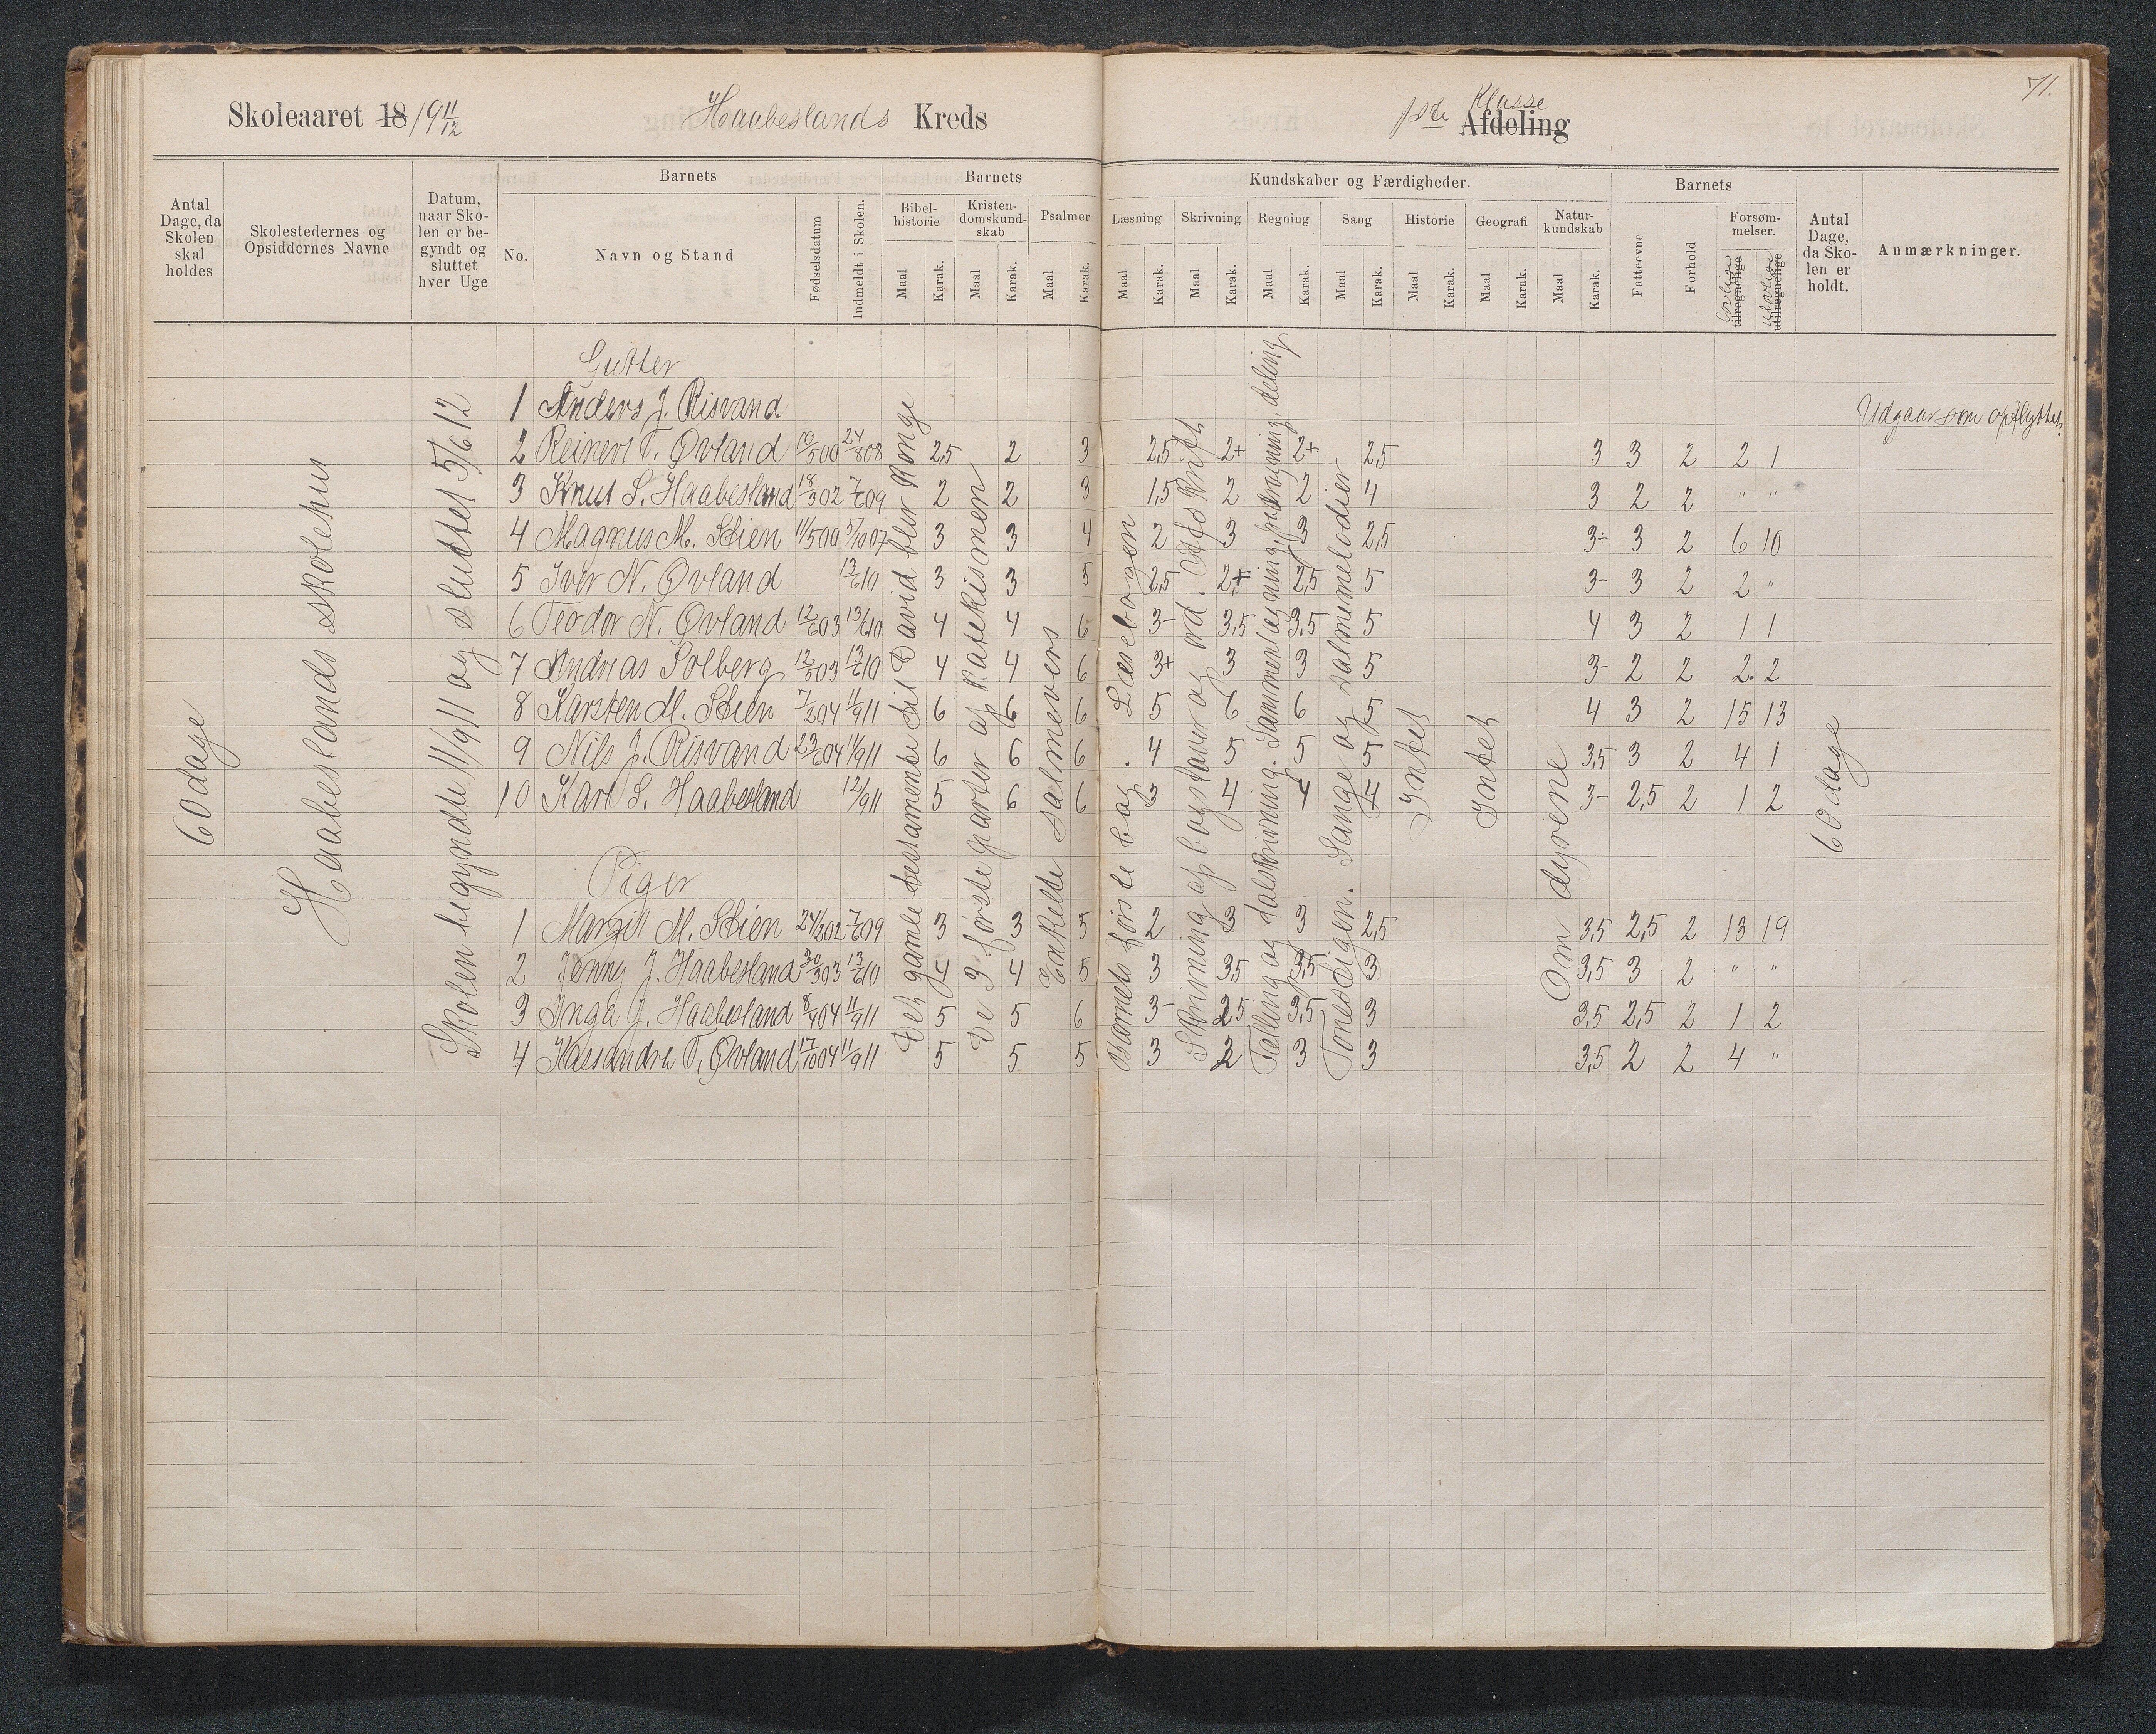 71.
Skoleaaret 18/19 11/12 Haabeslands Kreds 1ste Klasse Afdeling
Antal Dage, da Skolen skal holdes
Skolestedernes og Opsiddernes Navne
Datum, naar Skolen er begyndt og sluttet hver Uge
Barnets
No. Navn og Stand Fødselsdatum Indmeldt i Skolen.
Barnets Kundskaber og Færdigheder.
Bibelhistorie Kristendomskundskab Psalmer Læsning Skrivning Regning Sang Historie Geografi Naturkundskab
Maal Karak. Maal Karak. Maal Karak. Maal Karak. Maal Karak. Maal Karak. Maal Karak. Maal Karak. Maal Karak. Maal Karak.
Barnets
Fatteevne Forhold Forsømmelser. tilregnelige utilregnelige
Antal Dage, da Skolen er holdt.
Anmærkninger.
60 dage
Haabeslands skolehus
Skolen begyndte 11/9 11 og sluttet 5/6 12
Det gamle testamente til David blir Konge
De 3 første parter af Katekismen
Enkelte salmevers
Barnets første bog. Læsebogen
Skrivning af bogstaver og ord. Afskrift
Tælling og talskrivning. Sammenlægning, fradragning, deling
Tonestigen. Sange og salmemelodier
Intet
Intet
Om dyrene
60 dage
Gutter
1 Anders J. Risvand Udgaar som opflyttet.
2 Reinert T. Øvland 10/5 00 24/8 08 2,5 2 3 2,5 2+ 2+ 2,5 3 3 2 2 1
3 Knut S. Haabesland 18/3 02 7/6 09 2 2 3 1,5 2 2 4 3 2 2 " "
4 Magnus M. Stien 11/5 00 5/10 07 3 3 4 2 3 3 2,5 3- 3 2 6 10
5 Iver N. Øvland 13/6 10 3 3 5 2,5 2+ 2,5 5 3- 3 2 2 "
6 Teodor N. Øvland 12/6 03 13/6 10 4 4 6 3- 3,5 3,5 5 4 3 2 1 1
7 Andreas Solberg 12/8 03 13/6 10 4 4 6 3+ 3 3 5 3- 2 2 2 2
8 Karsten M. Stien 7/2 04 11/9 11 6 6 6 5 6 6 5 4 3 2 15 13
9 Nils J. Risvand 23/6 04 11/9 11 6 6 6 4 5 5 5 3,5 3 2 4 1
10 Karl S. Haabesland 12/9 11 5 6 6 3 4 4 4 3- 2,5 2 1 2
Piger
1 Margit M. Stien 24/3 02 7/6 09 3 3 5 2 3 3 2,5 3,5 2,5 2 13 19
2 Jenny J. Haabesland 30/3 03 13/6 10 4 4 5 3 3,5 3,5 3 3,5 3 2 " "
3 Inga J. Haabesland 8/4 04 11/9 11 5 5 6 3- 2,5 3,5 3 3,5 2,5 2 1 2
4 Kasandra T. Øvland 17/10 04 11/9 11 5 5 5 3 2 3 3 3,5 2 2 4 "